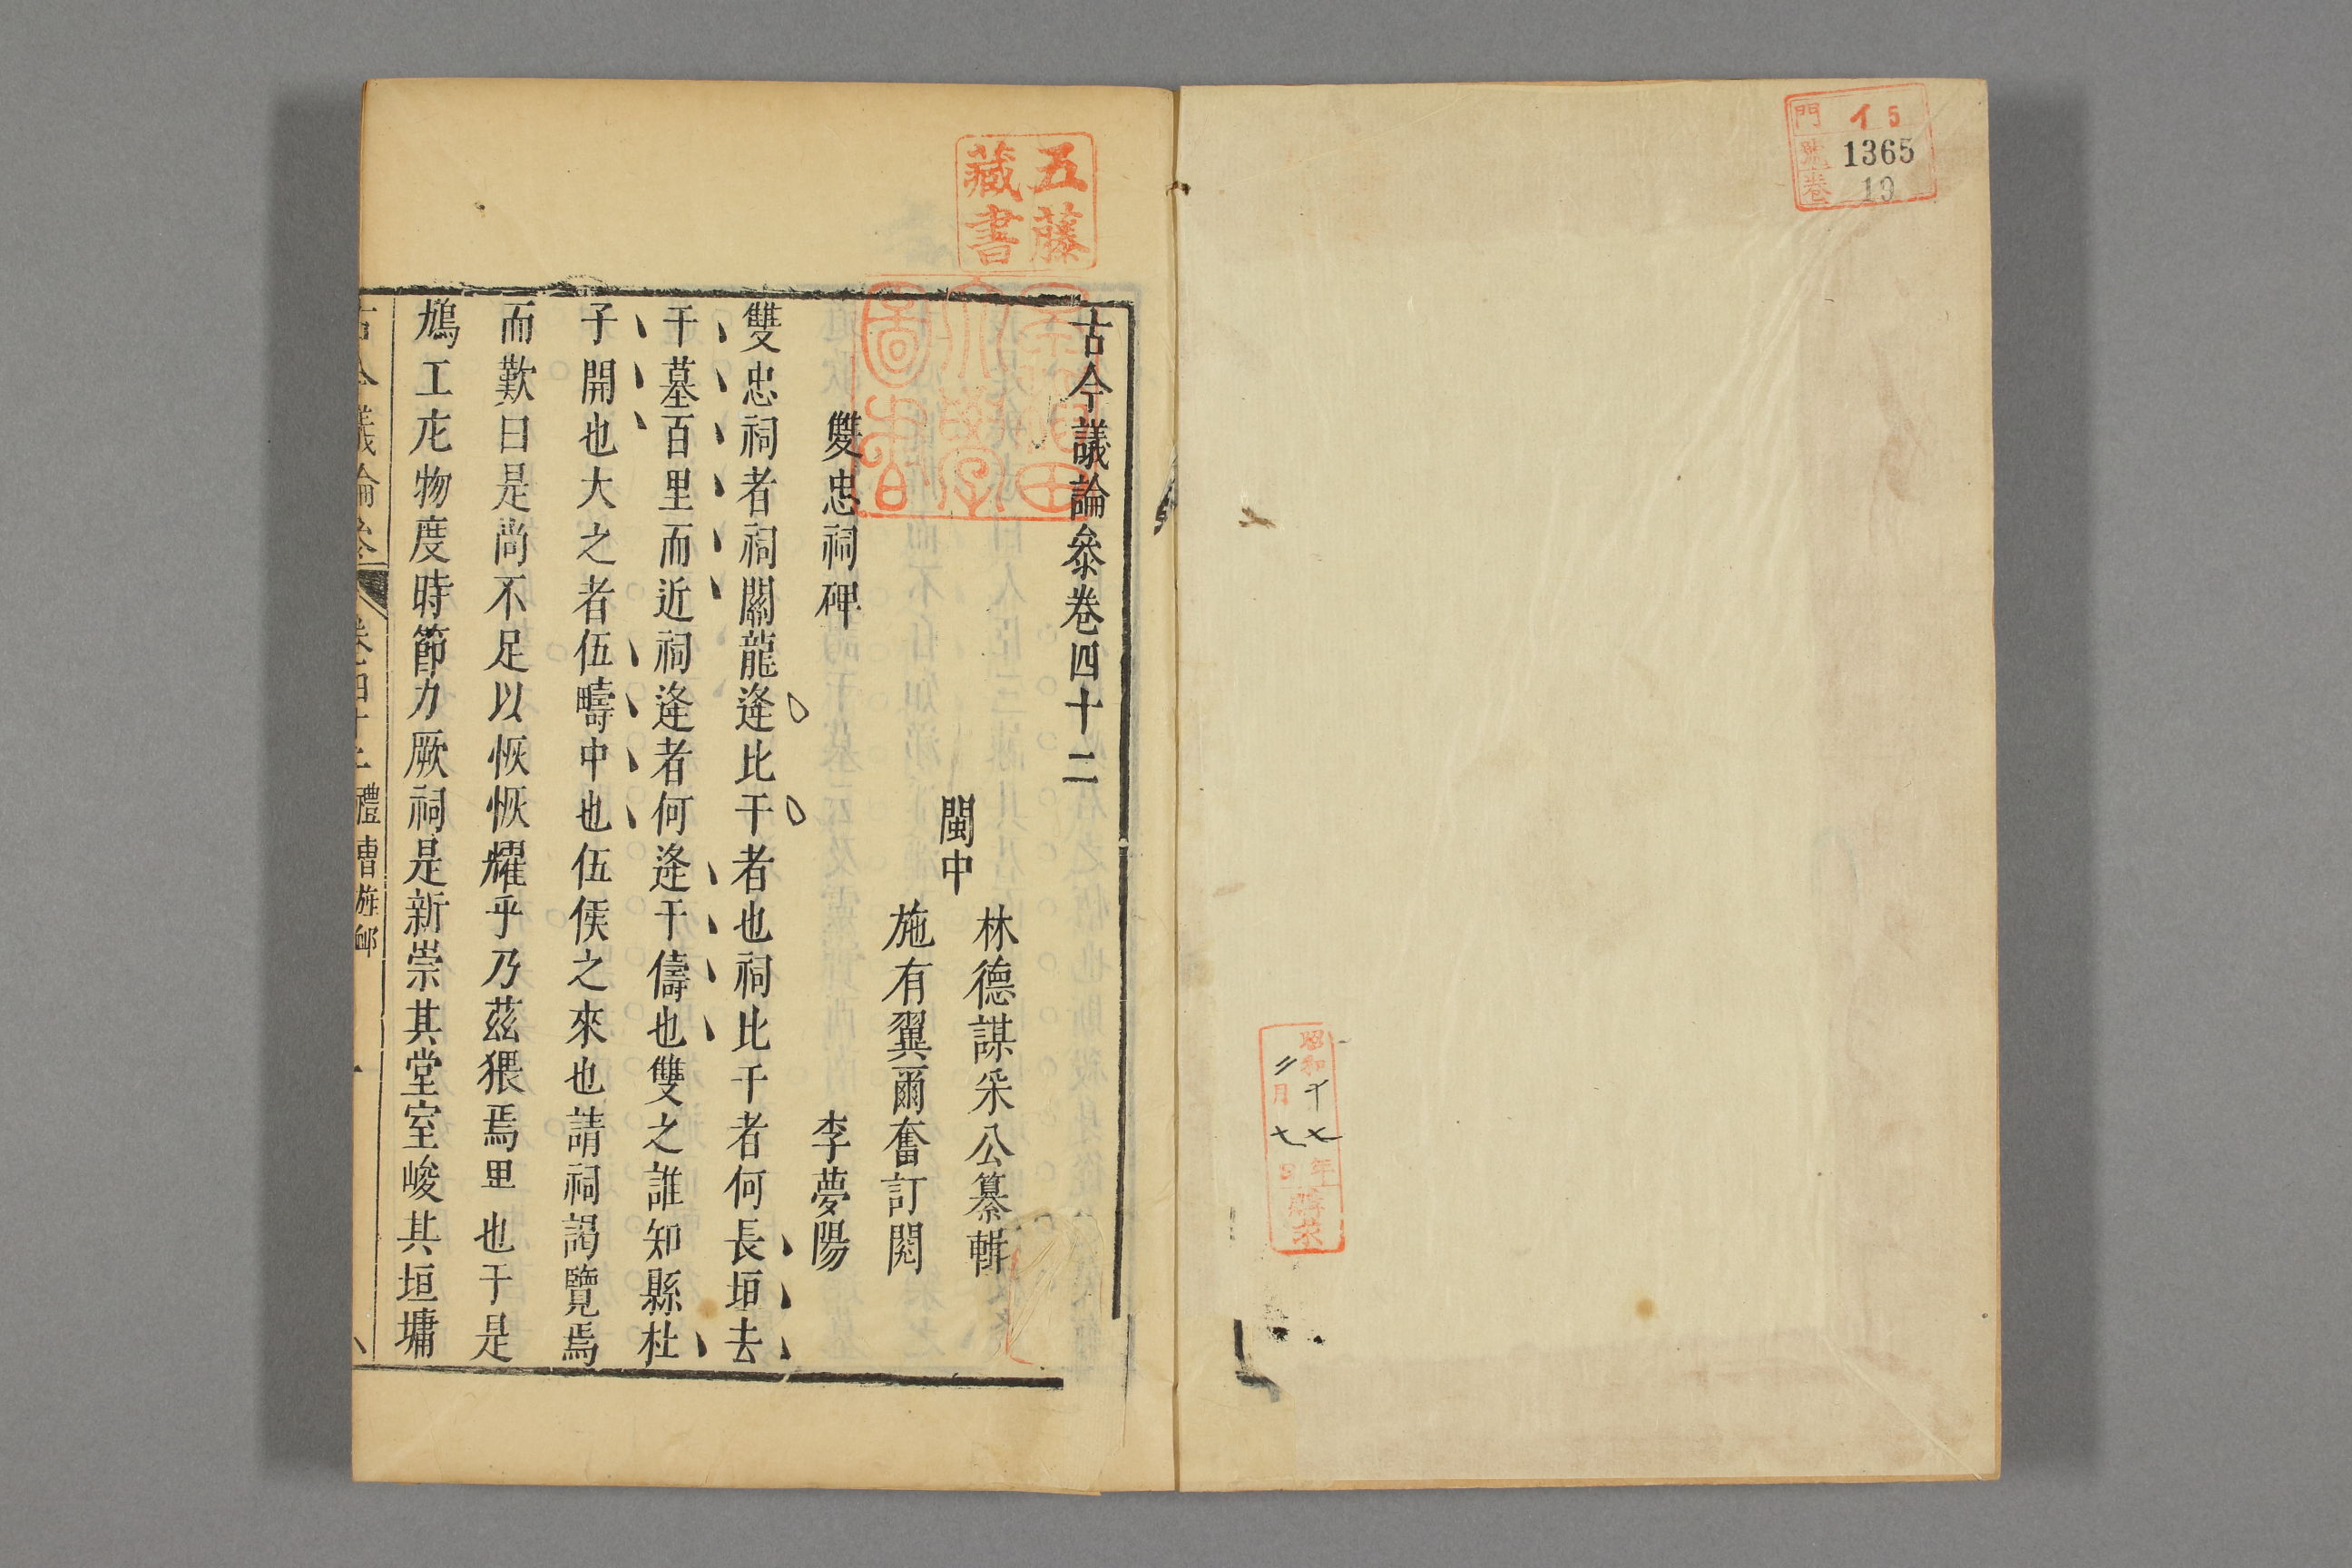 門 イ5
號 1365
卷 19
昭和十七年
二月七日
購求
五藤
藏書
早稲田
大學
圖書
古今議論叅卷四十二
閩中
林德謀采公纂輯
施有翼爾奮訂閱
雙忠祠碑 李夢陽
雙忠祠者祠關龍逄比干者也祠比干者何長垣去
干墓百里而近祠逄者何逄干儔也雙之誰知縣杜
子開也大之者伍疇中也伍侯之來也請祠謁覽焉
而歎曰是尚不足以恢恢耀乎乃茲猥焉里也于是
鳩工庀物度時節力厥祠是新崇其堂室峻其垣墉
古今議論叅 卷四十二 禮曹旌卹 一